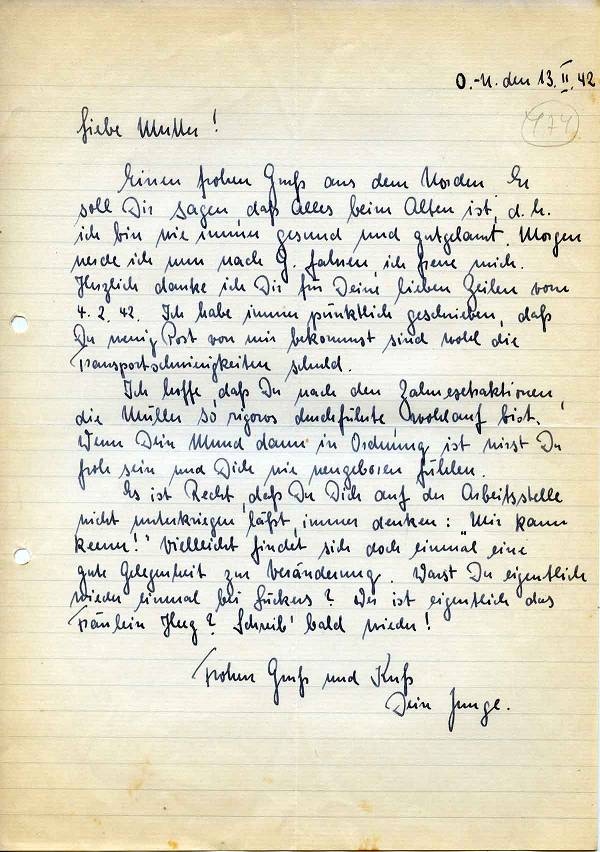 O.-U. den 13.II.42
474
Liebe Mutter!
Einen frohen Gruß aus dem Norden. Er
soll Dir sagen, daß alles beim Alten ist, d.h.
ich bin wie immer gesund und gutgelaunt. Morgen
werde ich nun nach G. fahren, ich freue mich.
Herzlich danke ich Dir für Deine lieben Zeilen vom
4.2.42. Ich habe immer pünktlich geschrieben, daß
Du wenig Post von mir bekommst sind wohl die
Transportschwierigkeiten schuld.
Ich hoffe, daß Du nach den Zahnextraktionen,
die Müller so rigoros durchführte wohlauf bist.
Wenn Dein Mund dann in Ordnung ist wirst Du
froh sein und Dich wie neugeboren fühlen.
Es ist Recht, daß Du Dich auf der Arbeitsstelle
nicht unterkriegen läßt, immer denken: "Mir kann
keener!" Vielleicht findet sich doch einmal eine
gute Gelegenheit zur Veränderung. Warst Du eigentlich
wieder einmal bei ? Wer ist eigentlich das
Fräulein Hug? Schreib' bald wieder!
Frohen Gruß und Kuß
Dein Junge.